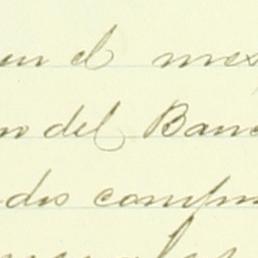 en el mes
n del Banc
dos comp